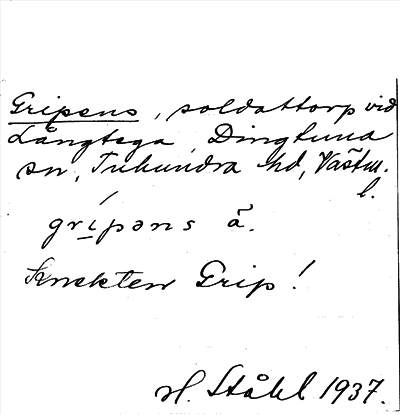 Gripens, soldattorp vid
Långtega, Dingtuna
sn, Tuhundra hd, Västm.
l.
gripəns ä.
Knekten Grip!
H. Ståhl 1937.